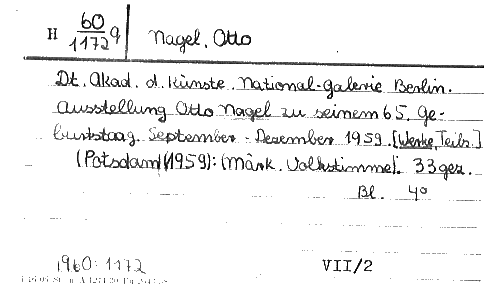 H 60/1172 9 Nagel, Otto
Dt. Akad. d. Künste. National-Galerie Berlin.
Ausstellung Otto Nagel zu seinem 65. Ge-
burtstag. September - Dezember 1959. [Werke, Teils.]
(Potsdam (1959): (Märk. Volksstimme). 33 gez.
Bl. 4°
1960: 1172
VII/2